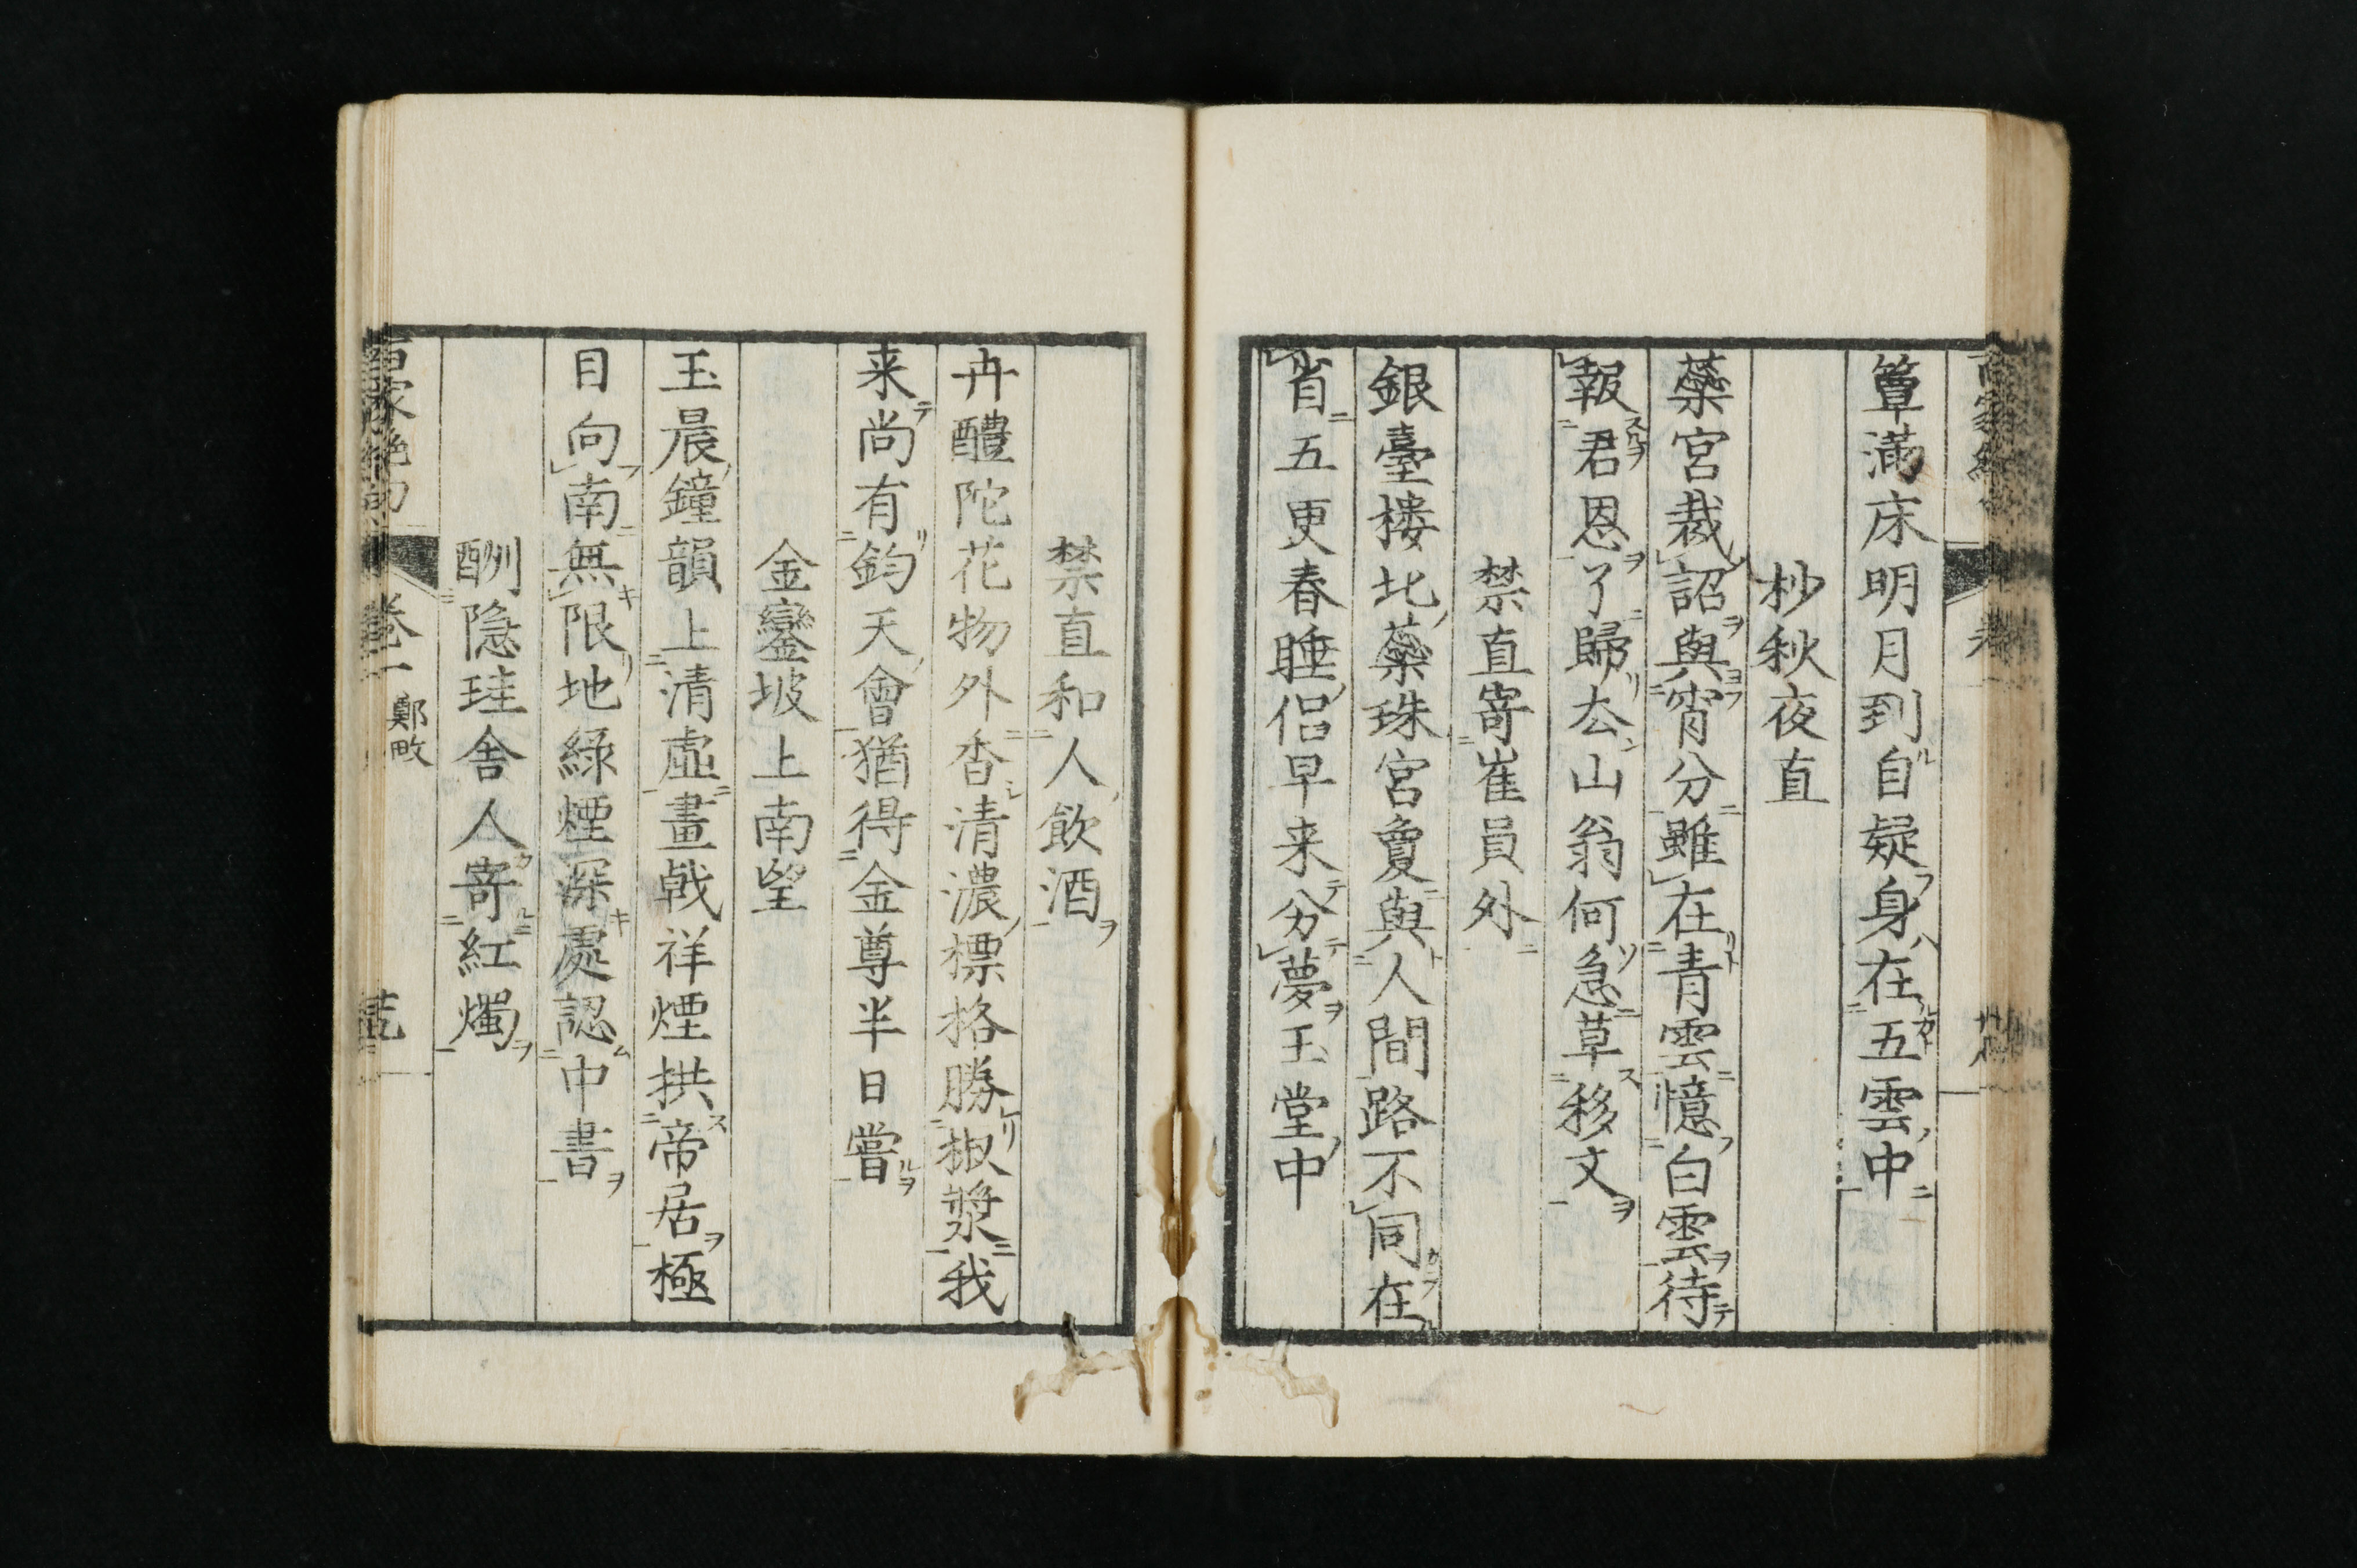 簟滿床明月到自疑身在五雲中
杪秋夜直
蘂宮裁詔與宵分雖在青雲憶白雲待
報君恩了歸去山翁何急草移文
禁直寄崔員外
銀臺樓北蘂珠宮夐與人間路不同在
省五更春睡侣早来分夢玉堂中
禁直和人飲酒
卉醴陀花物外香清濃標格勝椒漿我
来尚有鈞天會猶得金尊半日嘗
金鑾坡上南望
玉晨鐘韻上清虛畫戟祥煙拱帝居極
目向南無限地綠煙深處認中書
酬隐珪舍人寄紅燭
百家絶句
卷一
鄭畋